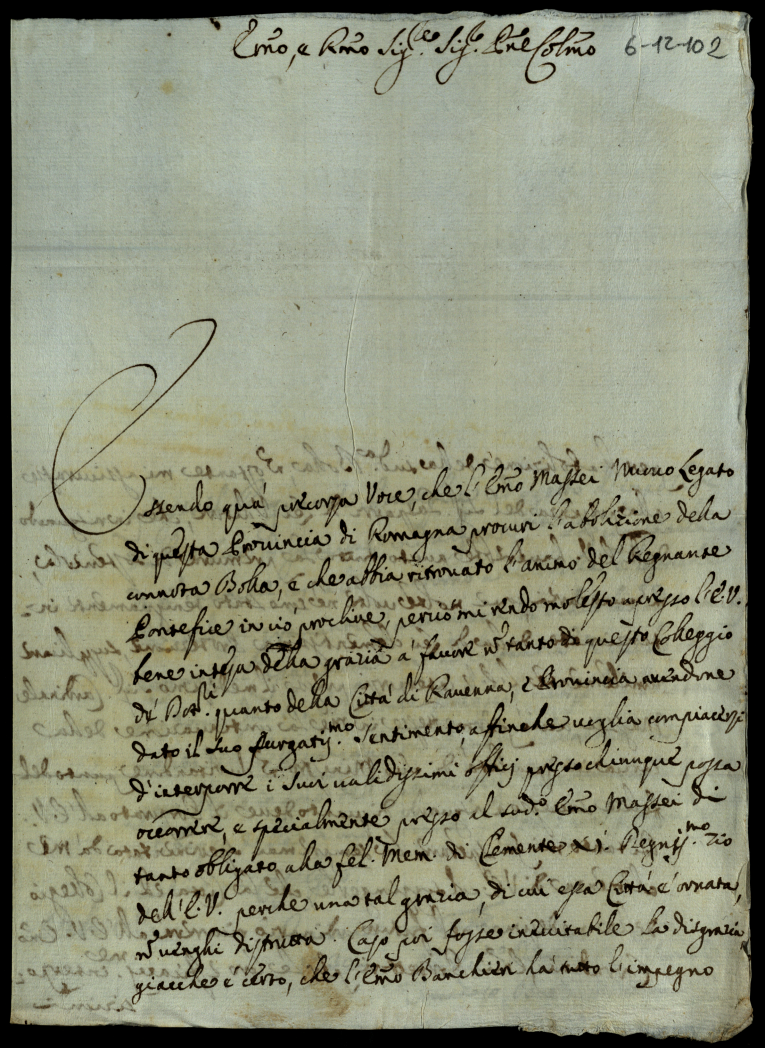 Emo, e Rmo Sig.re Sig.re Pne Colmo 6-12-102
Essendo quà precorsa Voce, che l'Emo Massei Nuovo Legato
di questa Provincia di Romagna procuri l'abbolizione della
connota Bolla, e che abbia ritrovato l'animo del Regnante
Pontefice in ciò proclive, perciò mi rendo molesto appresso l'E.V.
bene intesa della grazia à favore tanto di questo Colleggio
de' Dott.ri quanto della Città di Ravenna, e Provincia avendone
dato il suo Purgatiss.mo Sentimento, affinche voglia compiacersi
d'interporre i suoi validissimi offícj presso chiunque possa
occorrere, e specialmente presso il sud.o Emo Massei di
tanto obbligato alla fel: Mem: di Clemente XI. Degniss.mo Zio
dell'E.V. perche una tal grazia, di cui essa Città è ornata,
venghi distrutta. Caso poi fosse inevitabile la disgrazia
giacche è certo, che l'Emo Banchieri hà tutto l'impegno